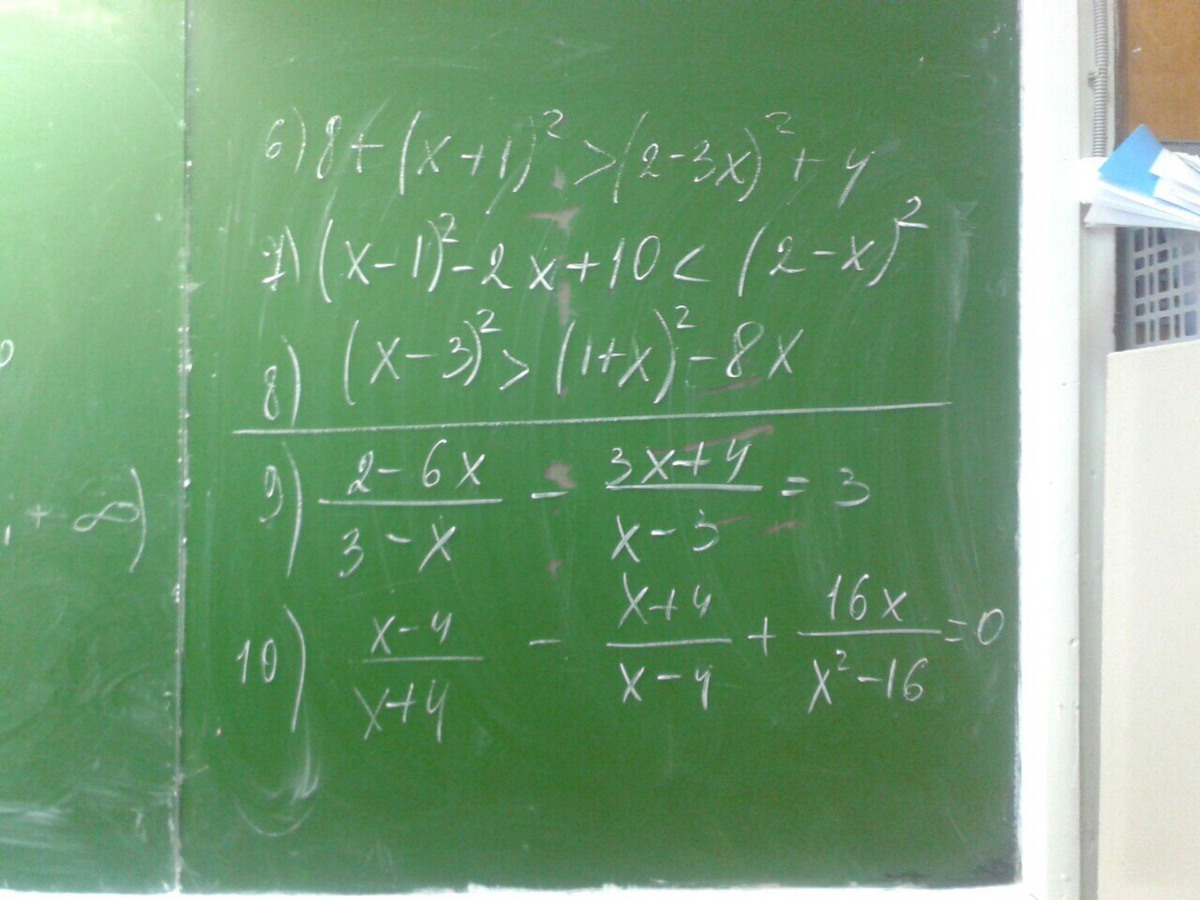 , +∞)
6) 8+(x+1)²>(2-3x)²+4
7) (x-1)²-2x+10< (2-x)²
8) (x-3)²> (1+x)²-8x
9) (2-6x)/(3-x) - (3x+4)/(x-3) = 3
10) (x-4)/(x+4) - (x+4)/(x-4) + 16x/(x²-16) =0